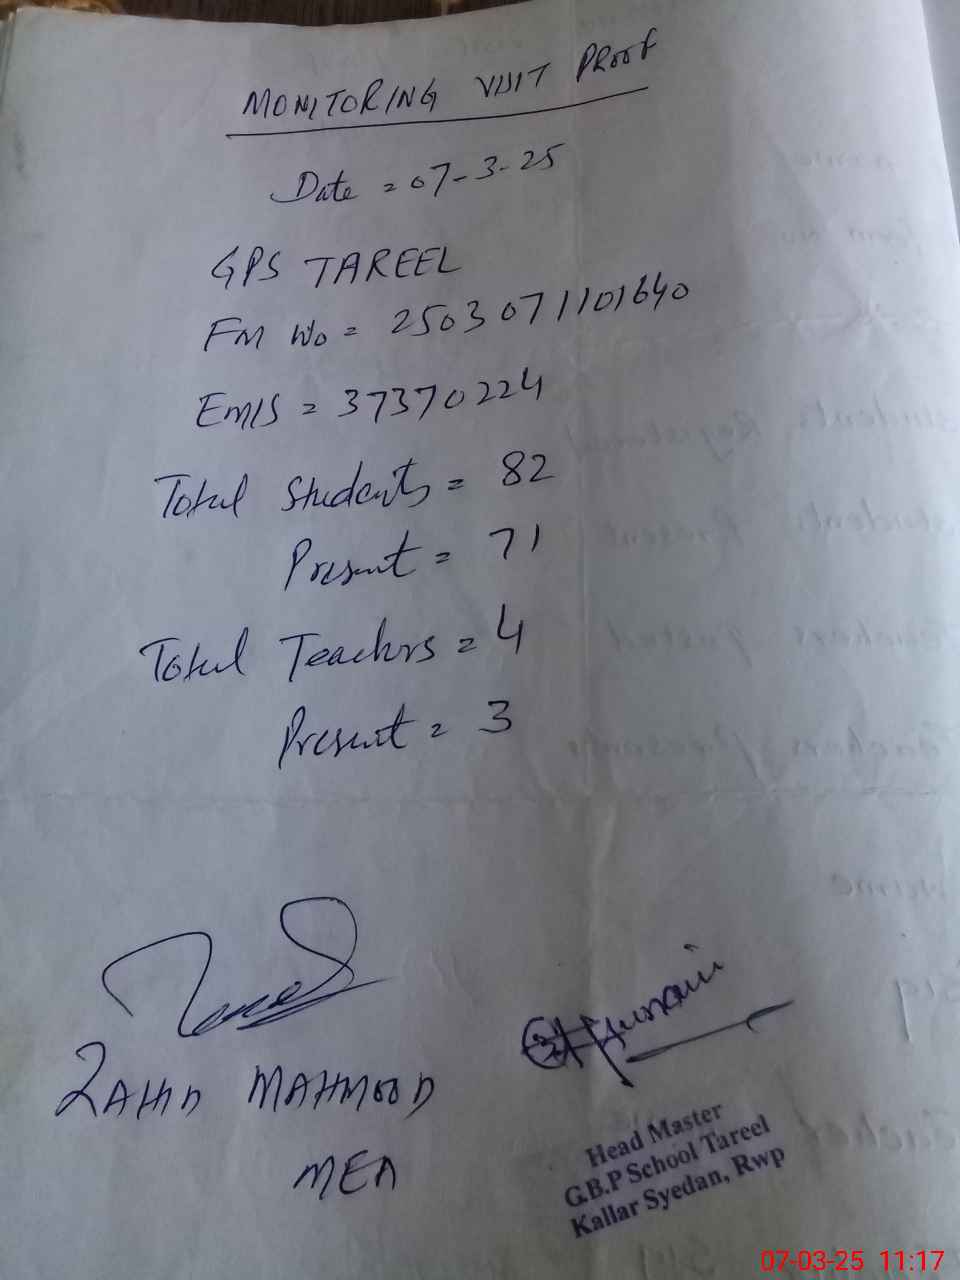 MONITORING VISIT PROOF
Date = 07-3-25
GPS TAREEL
FM No = 2503071101640
EMIS = 37370224
Total Students = 82
Present = 71
Total Teachers = 4
Present = 3
ZAHID MAHMOOD
MEA
Hussain
Head Master
G.B.P School Tareel
Kallar Syedan, Rwp
07-03-25 11:17